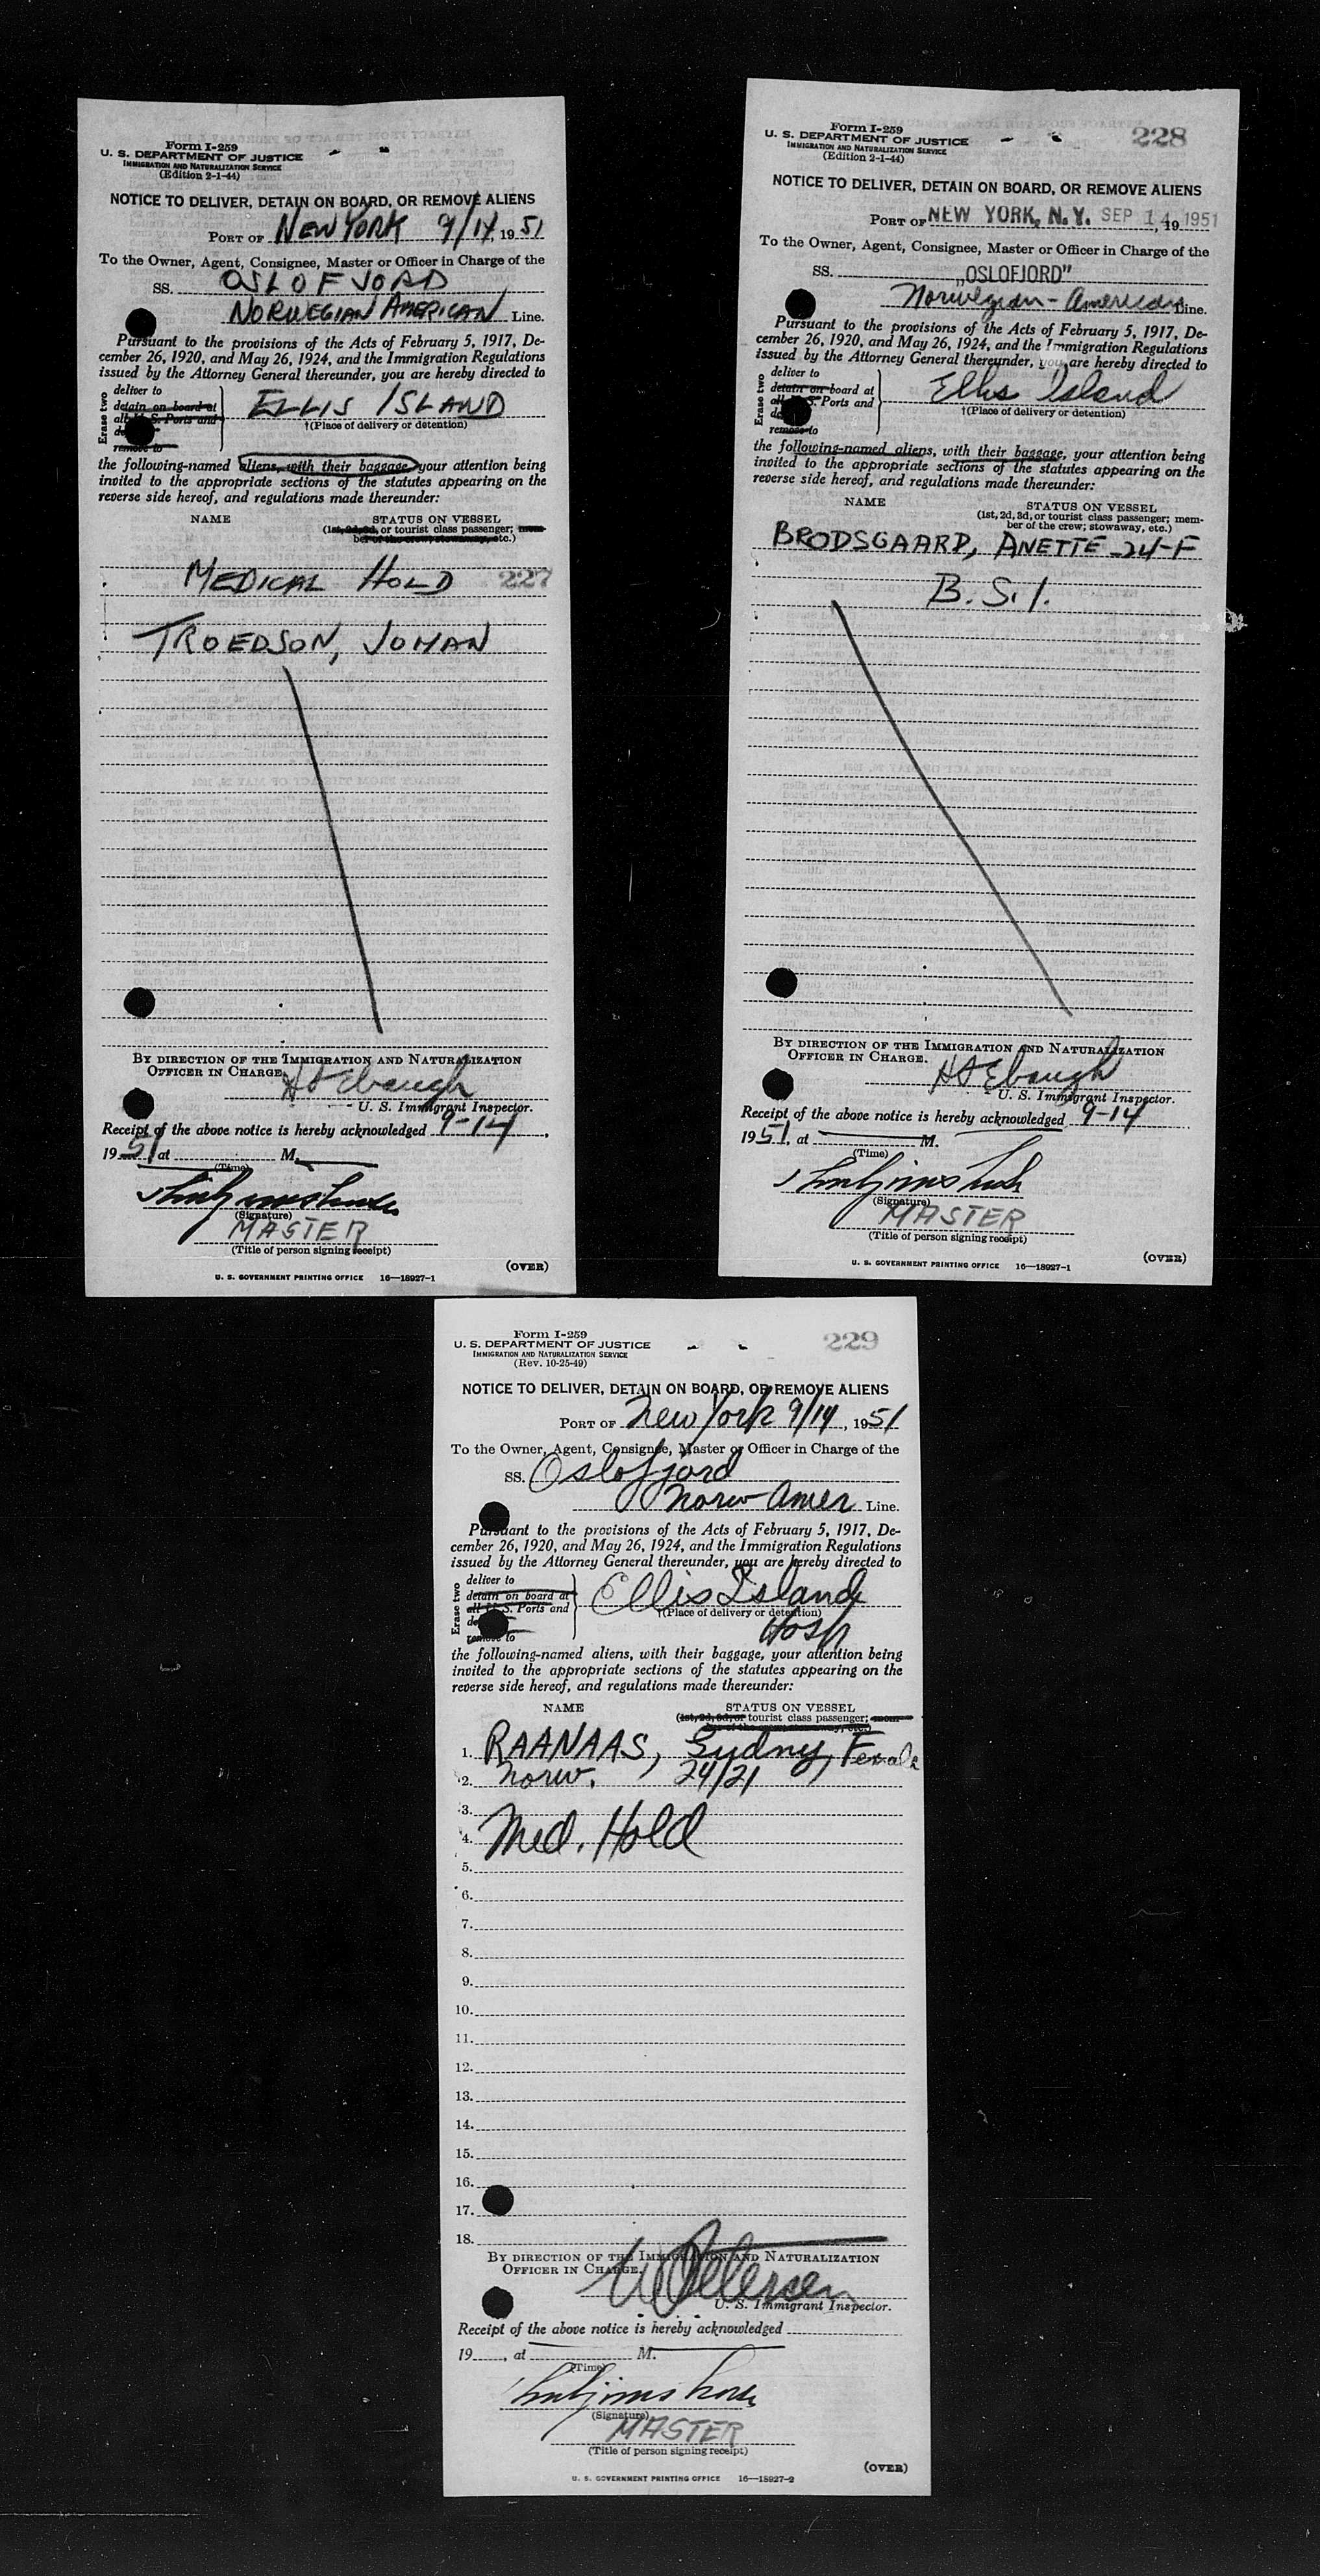 Form I-259
U. S. DEPARTMENT OF JUSTICE
IMMIGRATION AND NATURALIZATION SERVICE
(Edition 2-1-44)
NOTICE TO DELIVER, DETAIN ON BOARD, OR REMOVE ALIENS
PORT OF NEW YORK 9/14, 1951
To the Owner, Agent, Consignee, Master or Officer in Charge of the
SS. OSLOFJORD
NORWEGIAN AMERICAN Line.
Pursuant to the provisions of the Acts of February 5, 1917, De-
cember 26, 1920, and May 26, 1924, and the Immigration Regulations
issued by the Attorney General thereunder, you are hereby directed to
Erase two
deliver to
detain on board at
all U. S. Ports and
remove to
ELLIS ISLAND
†(Place of delivery or detention)
the following-named aliens, with their baggage, your attention being
invited to the appropriate sections of the statutes appearing on the
reverse side hereof, and regulations made thereunder:
NAME STATUS ON VESSEL
(1st, 2d, 3d, or tourist class passenger; mem-
ber of the crew; stowaway, etc.)
MEDICAL HOLD 227
TROEDSON, JOHAN
BY DIRECTION OF THE IMMIGRATION AND NATURALIZATION
OFFICER IN CHARGE.
H Ebaugh
U. S. Immigrant Inspector.
Receipt of the above notice is hereby acknowledged 9-14,
1951, at M.
(Time)
(Signature)
MASTER
(Title of person signing receipt)
(OVER)
U. S. GOVERNMENT PRINTING OFFICE 16—18927-1
Form I-259
U. S. DEPARTMENT OF JUSTICE
IMMIGRATION AND NATURALIZATION SERVICE
(Edition 2-1-44)
228
NOTICE TO DELIVER, DETAIN ON BOARD, OR REMOVE ALIENS
PORT OF NEW YORK, N. Y. SEP 14 1951, 19
To the Owner, Agent, Consignee, Master or Officer in Charge of the
SS. „OSLOFJORD”
Norwegian-American Line.
Pursuant to the provisions of the Acts of February 5, 1917, De-
cember 26, 1920, and May 26, 1924, and the Immigration Regulations
issued by the Attorney General thereunder, you are hereby directed to
Erase two
deliver to
detain on board at
all U. S. Ports and
remove to
Ellis Island
†(Place of delivery or detention)
the following-named aliens, with their baggage, your attention being
invited to the appropriate sections of the statutes appearing on the
reverse side hereof, and regulations made thereunder:
NAME STATUS ON VESSEL
(1st, 2d, 3d, or tourist class passenger; mem-
ber of the crew; stowaway, etc.)
BRODSGAARD, ANETTE 24-F
B. S. I.
BY DIRECTION OF THE IMMIGRATION AND NATURALIZATION
OFFICER IN CHARGE.
H Ebaugh
U. S. Immigrant Inspector.
Receipt of the above notice is hereby acknowledged 9-14
1951, at M.
(Time)
(Signature)
MASTER
(Title of person signing receipt)
(OVER)
U. S. GOVERNMENT PRINTING OFFICE 16—18927-1
Form I-259
U. S. DEPARTMENT OF JUSTICE
IMMIGRATION AND NATURALIZATION SERVICE
(Rev. 10-25-49)
229
NOTICE TO DELIVER, DETAIN ON BOARD, OR REMOVE ALIENS
PORT OF New York 9/14, 1951
To the Owner, Agent, Consignee, Master or Officer in Charge of the
SS. Oslofjord
Norw-Amer Line.
Pursuant to the provisions of the Acts of February 5, 1917, De-
cember 26, 1920, and May 26, 1924, and the Immigration Regulations
issued by the Attorney General thereunder, you are hereby directed to
Erase two
deliver to
detain on board at
all U. S. Ports and
remove to
Ellis Island
†(Place of delivery or detention)
Hosp
the following-named aliens, with their baggage, your attention being
invited to the appropriate sections of the statutes appearing on the
reverse side hereof, and regulations made thereunder:
NAME STATUS ON VESSEL
(1st, 2d, 3d, or tourist class passenger; mem-
ber of the crew; stowaway, etc.)
1. RAANAAS, Sydney, Female
2. Norw. 24/21
3.
4. Med. Hold
5.
6.
7.
8.
9.
10.
11.
12.
13.
14.
15.
16.
17.
18.
BY DIRECTION OF THE IMMIGRATION AND NATURALIZATION
OFFICER IN CHARGE.
W Petersen
U. S. Immigrant Inspector.
Receipt of the above notice is hereby acknowledged
19, at M.
(Time)
(Signature)
MASTER
(Title of person signing receipt)
(OVER)
U. S. GOVERNMENT PRINTING OFFICE 16—18927-2